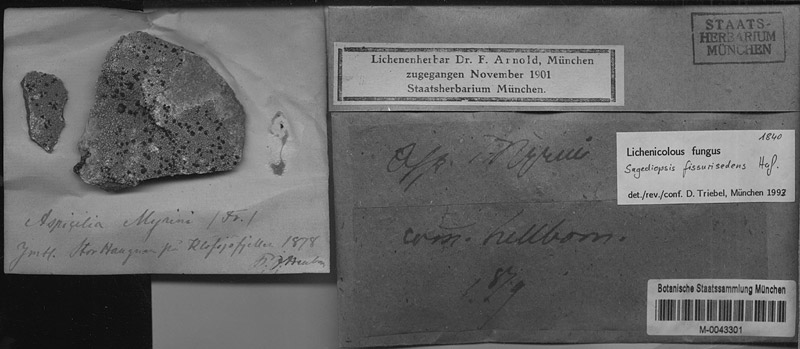 Aspicilia Myrini (Fr.)
1878
Lichenenherbar Dr. F. Arnold, München
zugegangen November 1901
Staatsherbarium München.
STAATS-
HERBARIUM
MÜNCHEN
Asp. Myrini
com. Hellbom.
1879
1840
Lichenicolous fungus
Sagediopsis fissurisedens Haf.
det./rev./conf. D. Triebel, München 1992
Botanische Staatssammlung München
M-0043301